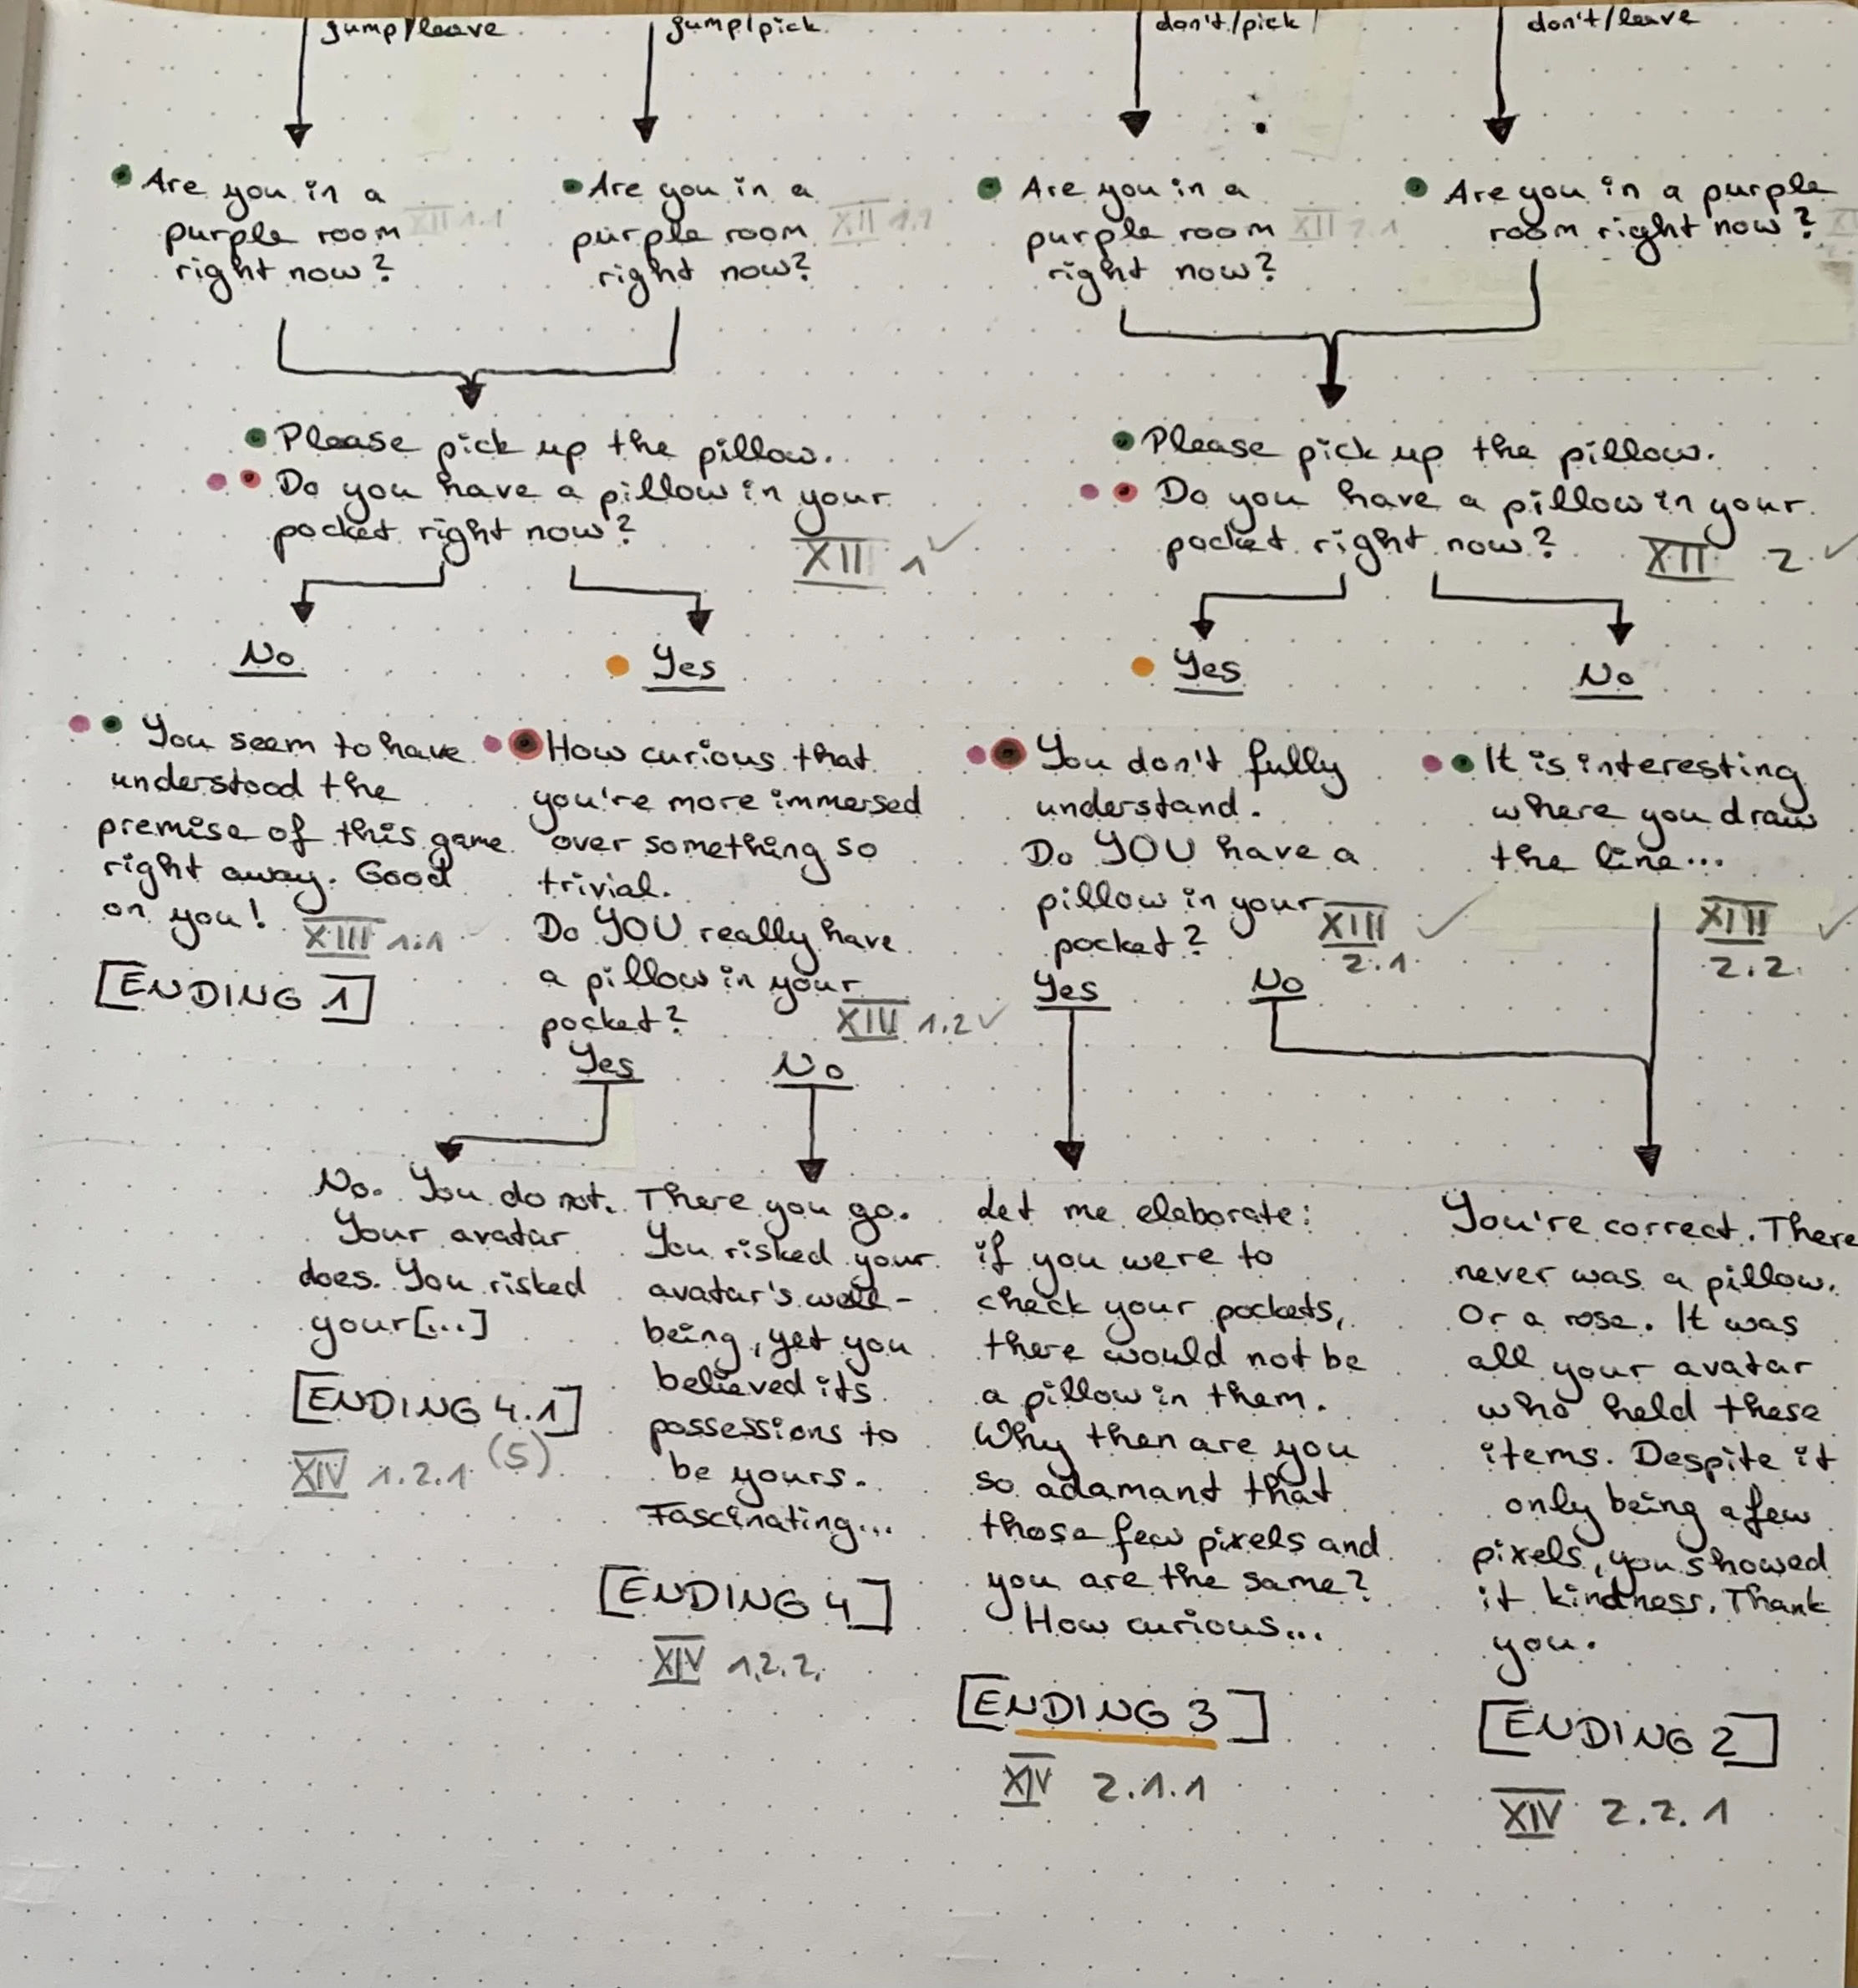 jump/leave
jump/pick
don't/pick
don't/leave
Are you in a
purple room
right now?
XII 1.1
Are you in a
purple room
right now?
XII 1.2
Are you in a
purple room
right now?
XII 2.1
Are you in a purple
room right now?
Please pick up the pillow.
Do you have a pillow in your
pocket right now?
XII 1
Please pick up the pillow.
Do you have a pillow in your
pocket right now?
XII 2
No
Yes
Yes
No
You seem to have
understood the
premise of this game
right away. Good
on you!
XIII 1.1
[ENDING 1]
How curious that
you're more immersed
over something so
trivial.
Do YOU really have
a pillow in your
pocket?
XIII 1.2
Yes
No
You don't fully
understand.
Do YOU have a
pillow in your
pocket?
XIII
2.1
Yes
No
It is interesting
where you draw
the line...
XIII
2.2
No. You do not.
Your avatar
does. You risked
your[...]
[ENDING 4.1]
XIV 1.2.1 (5)
There you go.
You risked your
avatar's well-
being, yet you
believed its
possessions to
be yours.
Fascinating...
[ENDING 4]
XIV 1.2.2.
Let me elaborate:
if you were to
check your pockets,
there would not be
a pillow in them.
Why then are you
so adamant that
those few pixels and
you are the same?
How curious...
[ENDING 3]
XIV 2.1.1
You're correct. There
never was a pillow.
Or a rose. It was
all your avatar
who held these
items. Despite it
only being a few
pixels, you showed
it kindness. Thank
you.
[ENDING 2]
XIV 2.2.1